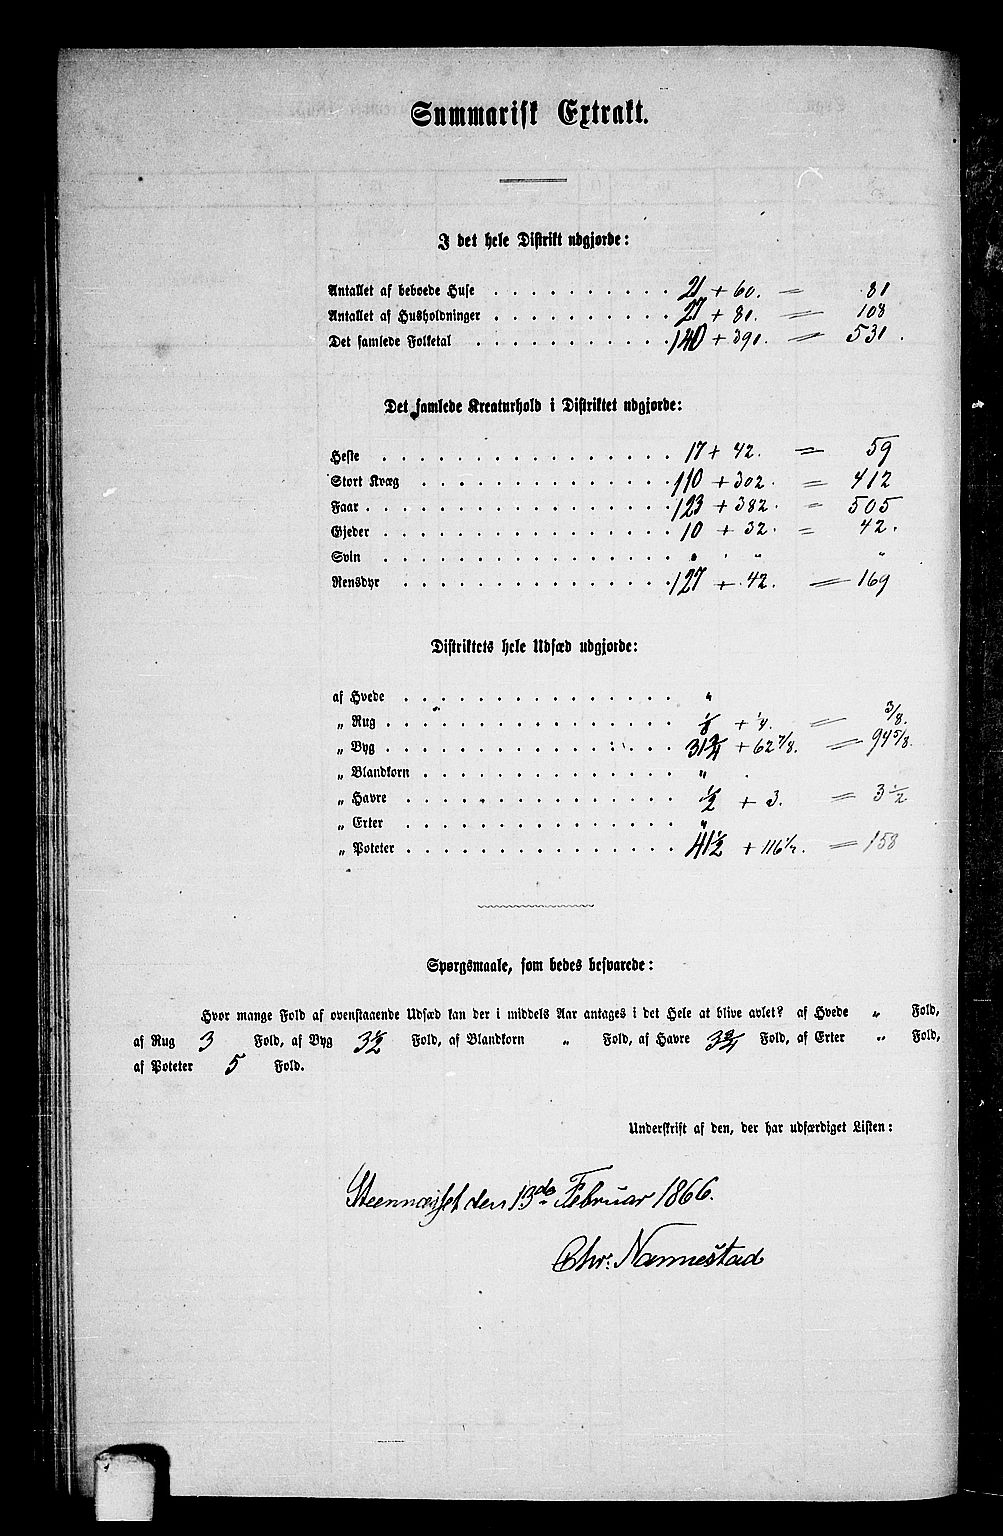 Summarisk Extrakt.
I det hele Distrikt udgjorde:
Antallet af beboede Huse . . . . . . . . . . 21 + 60. = 81
Antallet af Husholdninger . . . . . . . . . . 27 + 81. = 108
Det samlede Folketal . . . . . . . . . . . 140 + 391. = 531.
Det samlede Kreaturhold i Distriktet udgjorde:
Heste . . . . . . . . . . . . . . . . 17 + 42. = 59
Stort Kvæg . . . . . . . . . . . . . . 110 + 302. = 412
Faar . . . . . . . . . . . . . . . . . 123 + 382. = 505
Gjeder . . . . . . . . . . . . . . . . 10 + 32. = 42.
Svin . . . . . . . . . . . . . . . . „ „ „
Rensdyr . . . . . . . . . . . . . . . 127 + 42. = 169
Distriktets hele Udsæd udgjorde:
af Hvede . . . . . . . . . . . . . . . „
„ Rug . . . . . . . . . . . . . . . . 1/8 + 1/4. = 3/8.
„ Byg . . . . . . . . . . . . . . . . 31 3/4 + 62 7/8. = 94 5/8.
„ Blandkorn . . . . . . . . . . . . . . „
„ Havre . . . . . . . . . . . . . . . 1/2 + 3. = 3 1/2
„ Erter . . . . . . . . . . . . . . . „
„ Poteter . . . . . . . . . . . . . . . 41 1/2 + 116 1/2. = 158
Spørgsmaale, som bedes besvarede:
Hvor mange Fold af ovenstaaende Udsæd kan der i middels Aar antages i det Hele at blive avlet? af Hvede „ Fold,
af Rug 3 Fold, af Byg 3 1/2 Fold, af Blandkorn „ Fold, af Havre 3 3/4 Fold, af Erter „ Fold,
af Poteter 5 Fold.
Underskrift af den, der har udfærdiget Listen:
Steennæsset den 13de Februar 1866.
Chr: Nannestad